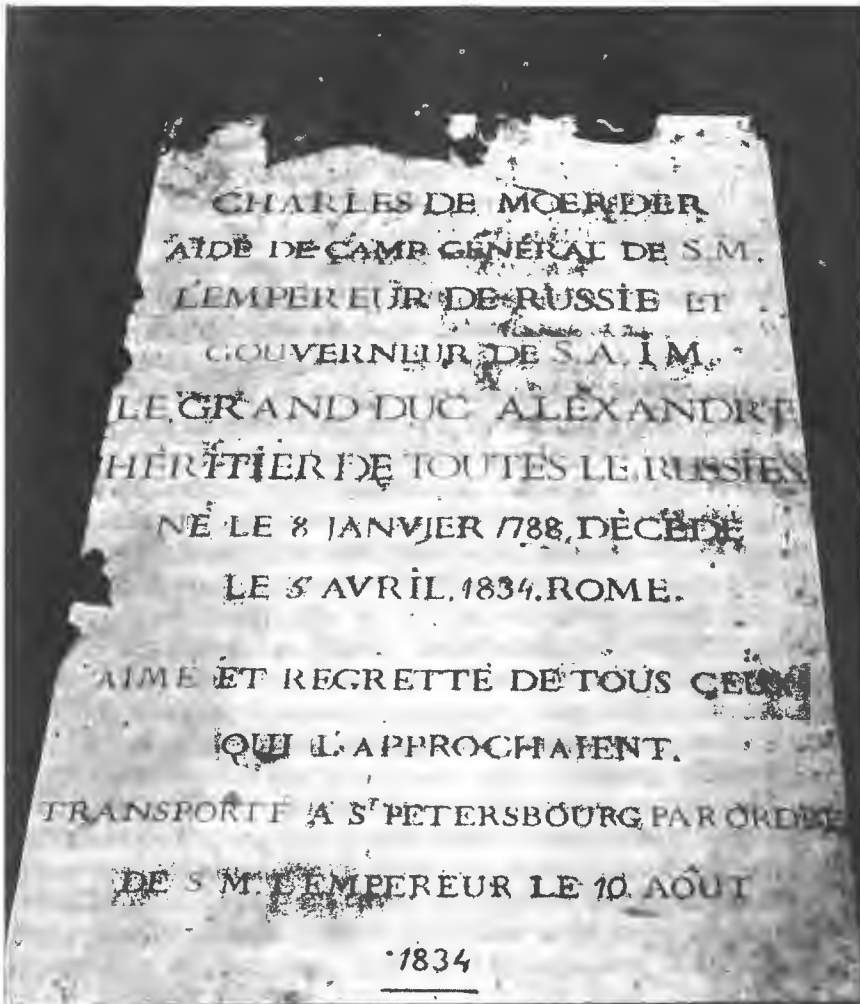 CHARLES DE MOERDER
AIDE DE CAMP GÉNÉRAL DE S.M.
L'EMPEREUR DE RUSSIE ET
GOUVERNEUR DE S.A.IM.
LE GRAND DUC ALEXANDRE
HÉRITIER DE TOUTES LE RUSSIES
NÉ LE 8 JANVIER 1788, DÉCÉDÉ
LE 5 AVRIL.1834.ROME.
AIMÉ ET REGRETTÉ DE TOUS CEUX
QUI L'APPROCHAIENT.
TRANSPORTÉ A Sᵀ PETERSBOURG PAR ORDRE
DE S M. L'EMPEREUR LE 10 AOÛT
1834